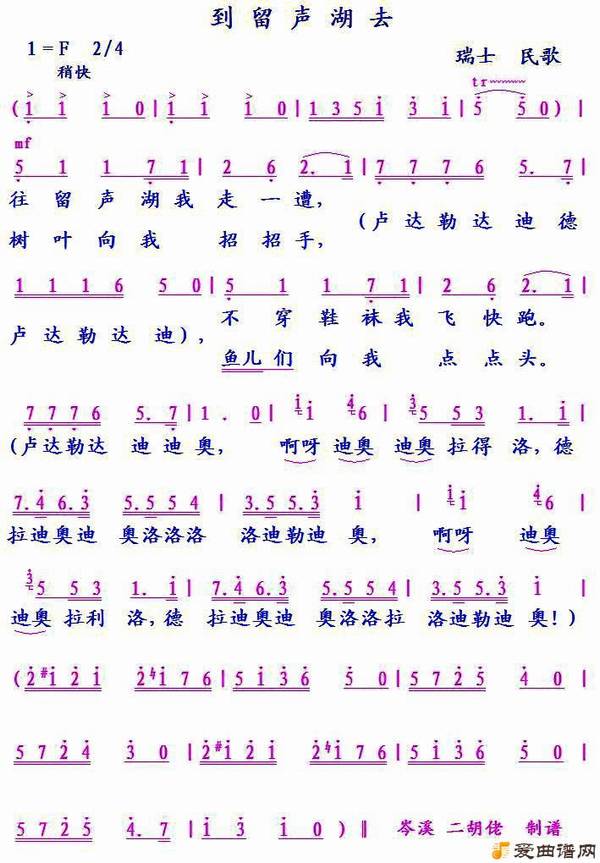 到留声湖去
1=F 2/4
瑞士 民歌
稍快
tr
(1 1 1 0 | 1 1 1 0 | 1 3 5 1 3 1 | 5 5 0) |
mf
5 1 1 7 1 | 2 6 2. 1 | 7 7 7 6 5. 7 |
往留声湖我走一遭, (卢达勒达迪德
树叶向我招招手,
1 1 1 6 5 0 | 5 1 1 7 1 | 2 6 2. 1 |
卢达勒达迪), 不穿鞋袜我飞快跑。
鱼儿们向我点点头。
7 7 7 6 5. 7 | 1 . 0 | 1 1 4 6 | 3 5 5 3 1. 1 |
(卢达勒达 迪迪奥, 啊呀迪奥 迪奥拉得洛,德
7. 4 6. 3 5. 5 5 4 | 3. 5 5. 3 1 | 1 1 4 6 |
拉迪奥迪 奥洛洛洛 洛迪勒迪奥, 啊呀 迪奥
3 5 5 3 1. 1 | 7. 4 6. 3 5. 5 5 4 | 3. 5 5. 3 1 |
迪奥拉利洛,德 拉迪奥迪 奥洛洛拉 洛迪勒迪奥!)
(2 #1 2 1 2 #1 7 6 | 5 1 3 6 5 0 | 5 7 2 5 4 0 |
5 7 2 4 3 0 | 2 #1 2 1 2 #1 7 6 | 5 1 3 6 5 0 |
5 7 2 5 4. 7 | 1 3 1 0) ‖
岑溪 二胡佬 制谱
爱曲谱网